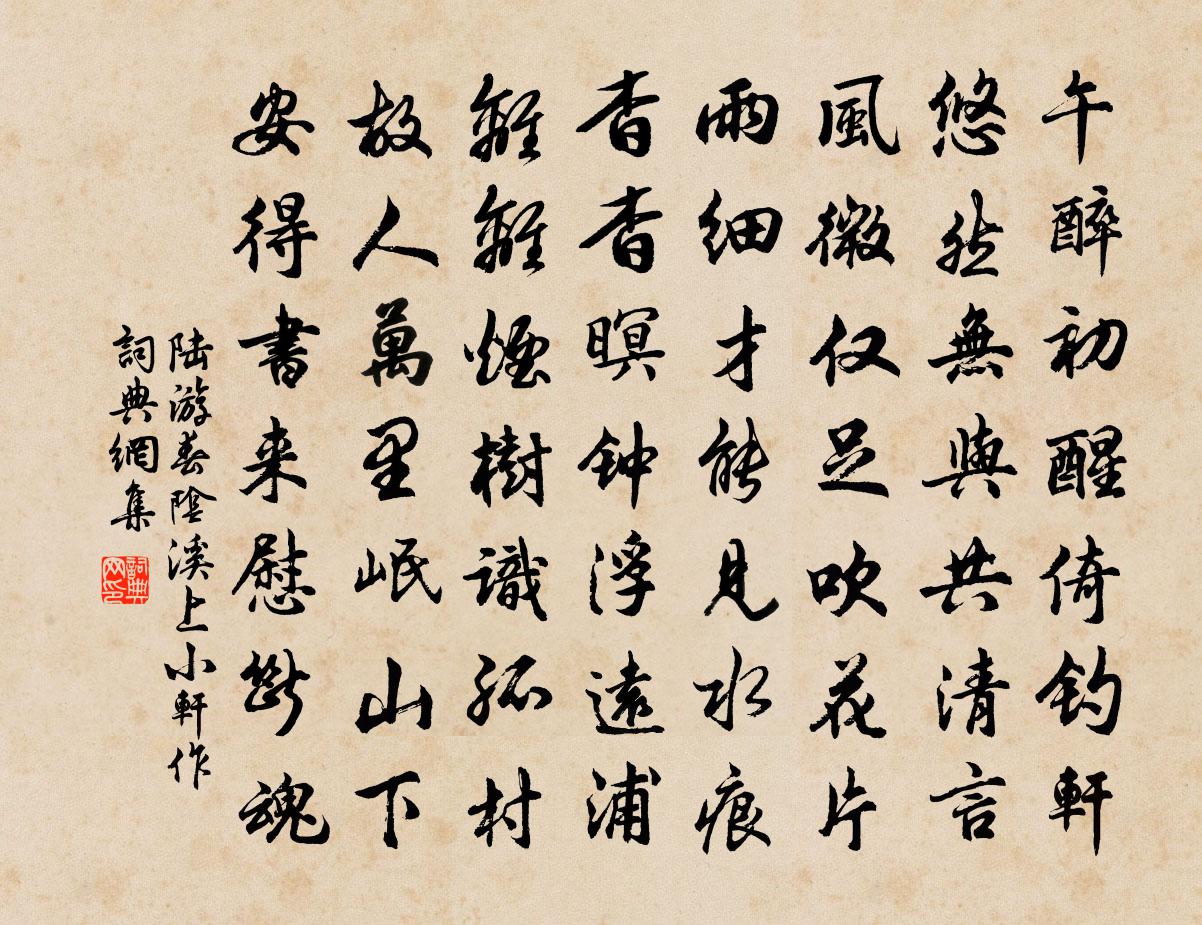 午醉初醒倚钓軒
悠然無與共清言
風微仅足吹花片
雨細才能見水痕
杳杳暝钟浮遠浦
離離煙樹識孤村
故人萬里岷山下
安得書来慰斷魂
陸游春陰溪上小軒作
詞典網集
詞典
网印